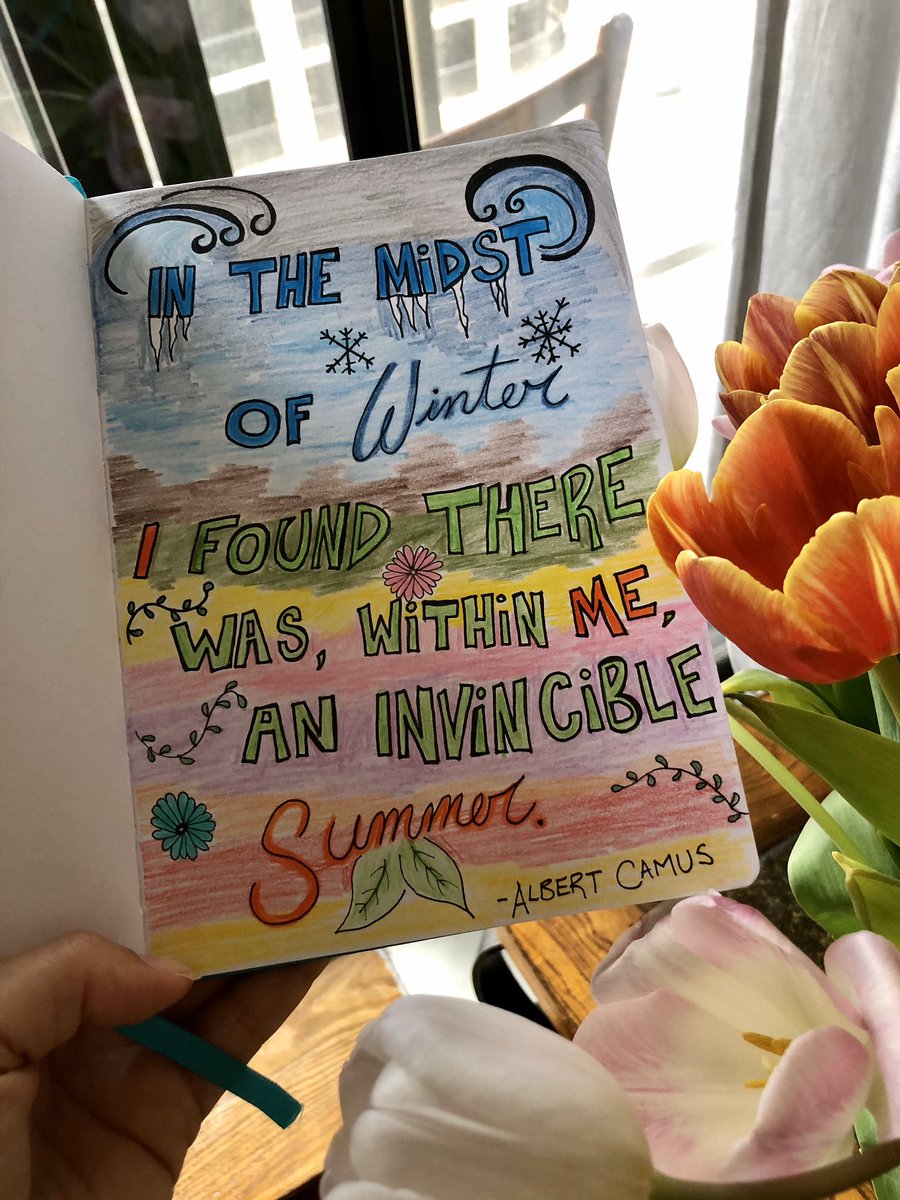 IN THE MiDST
OF Winter
I FOUND THERE
WAS, WiTHiN ME,
AN INViNCiBLE
Summer.
-ALBERT CAMUS